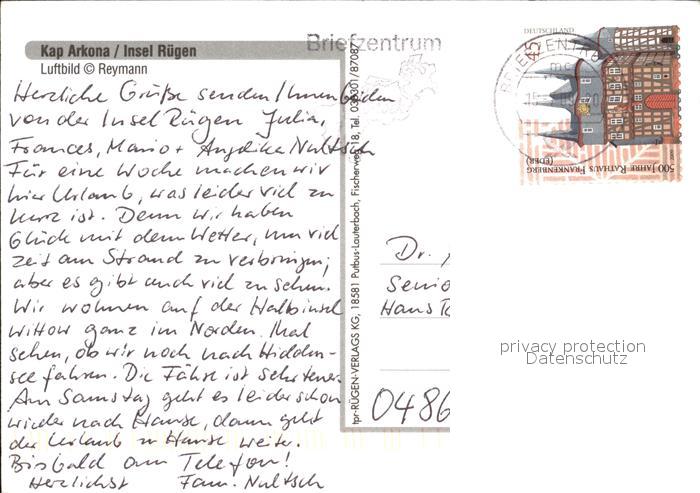 Kap Arkona / Insel Rügen
Luftbild © Reymann
Herzliche Grüße senden Ihnen beiden
von der Insel Rügen Julia,
Frances, Mario + Angelika Nultsch
Für eine Woche machen wir
hier Urlaub, was leider viel zu
kurz ist. Denn wir haben
Glück mit dem Wetter, um viel
Zeit am Strand zu verbringen;
aber es gibt auch viel zu sehen.
Wir wohnen auf der Halbinsel
Wittow ganz im Norden. Mal
sehen, ob wir noch nach Hidden-
see fahren. Die Fähre ist sehr teuer.
Am Samstag geht es leider schon
wieder nach Hause, dann geht
der Urlaub zu Hause weiter.
Bis bald am Telefon!
Herzlichst Fam. Nultsch
tpr-RÜGEN-VERLAGS KG, 18581 Putbus-Lauterbach, Fischerweg 18, Tel. 038301/87087
Briefzentrum
BRIEFZENTRUM
mc
DEUTSCHLAND
45
500 JAHRE RATHAUS FRANKENBERG
(EDER)
Dr.
Senio
Hans
0486
privacy protection
Datenschutz